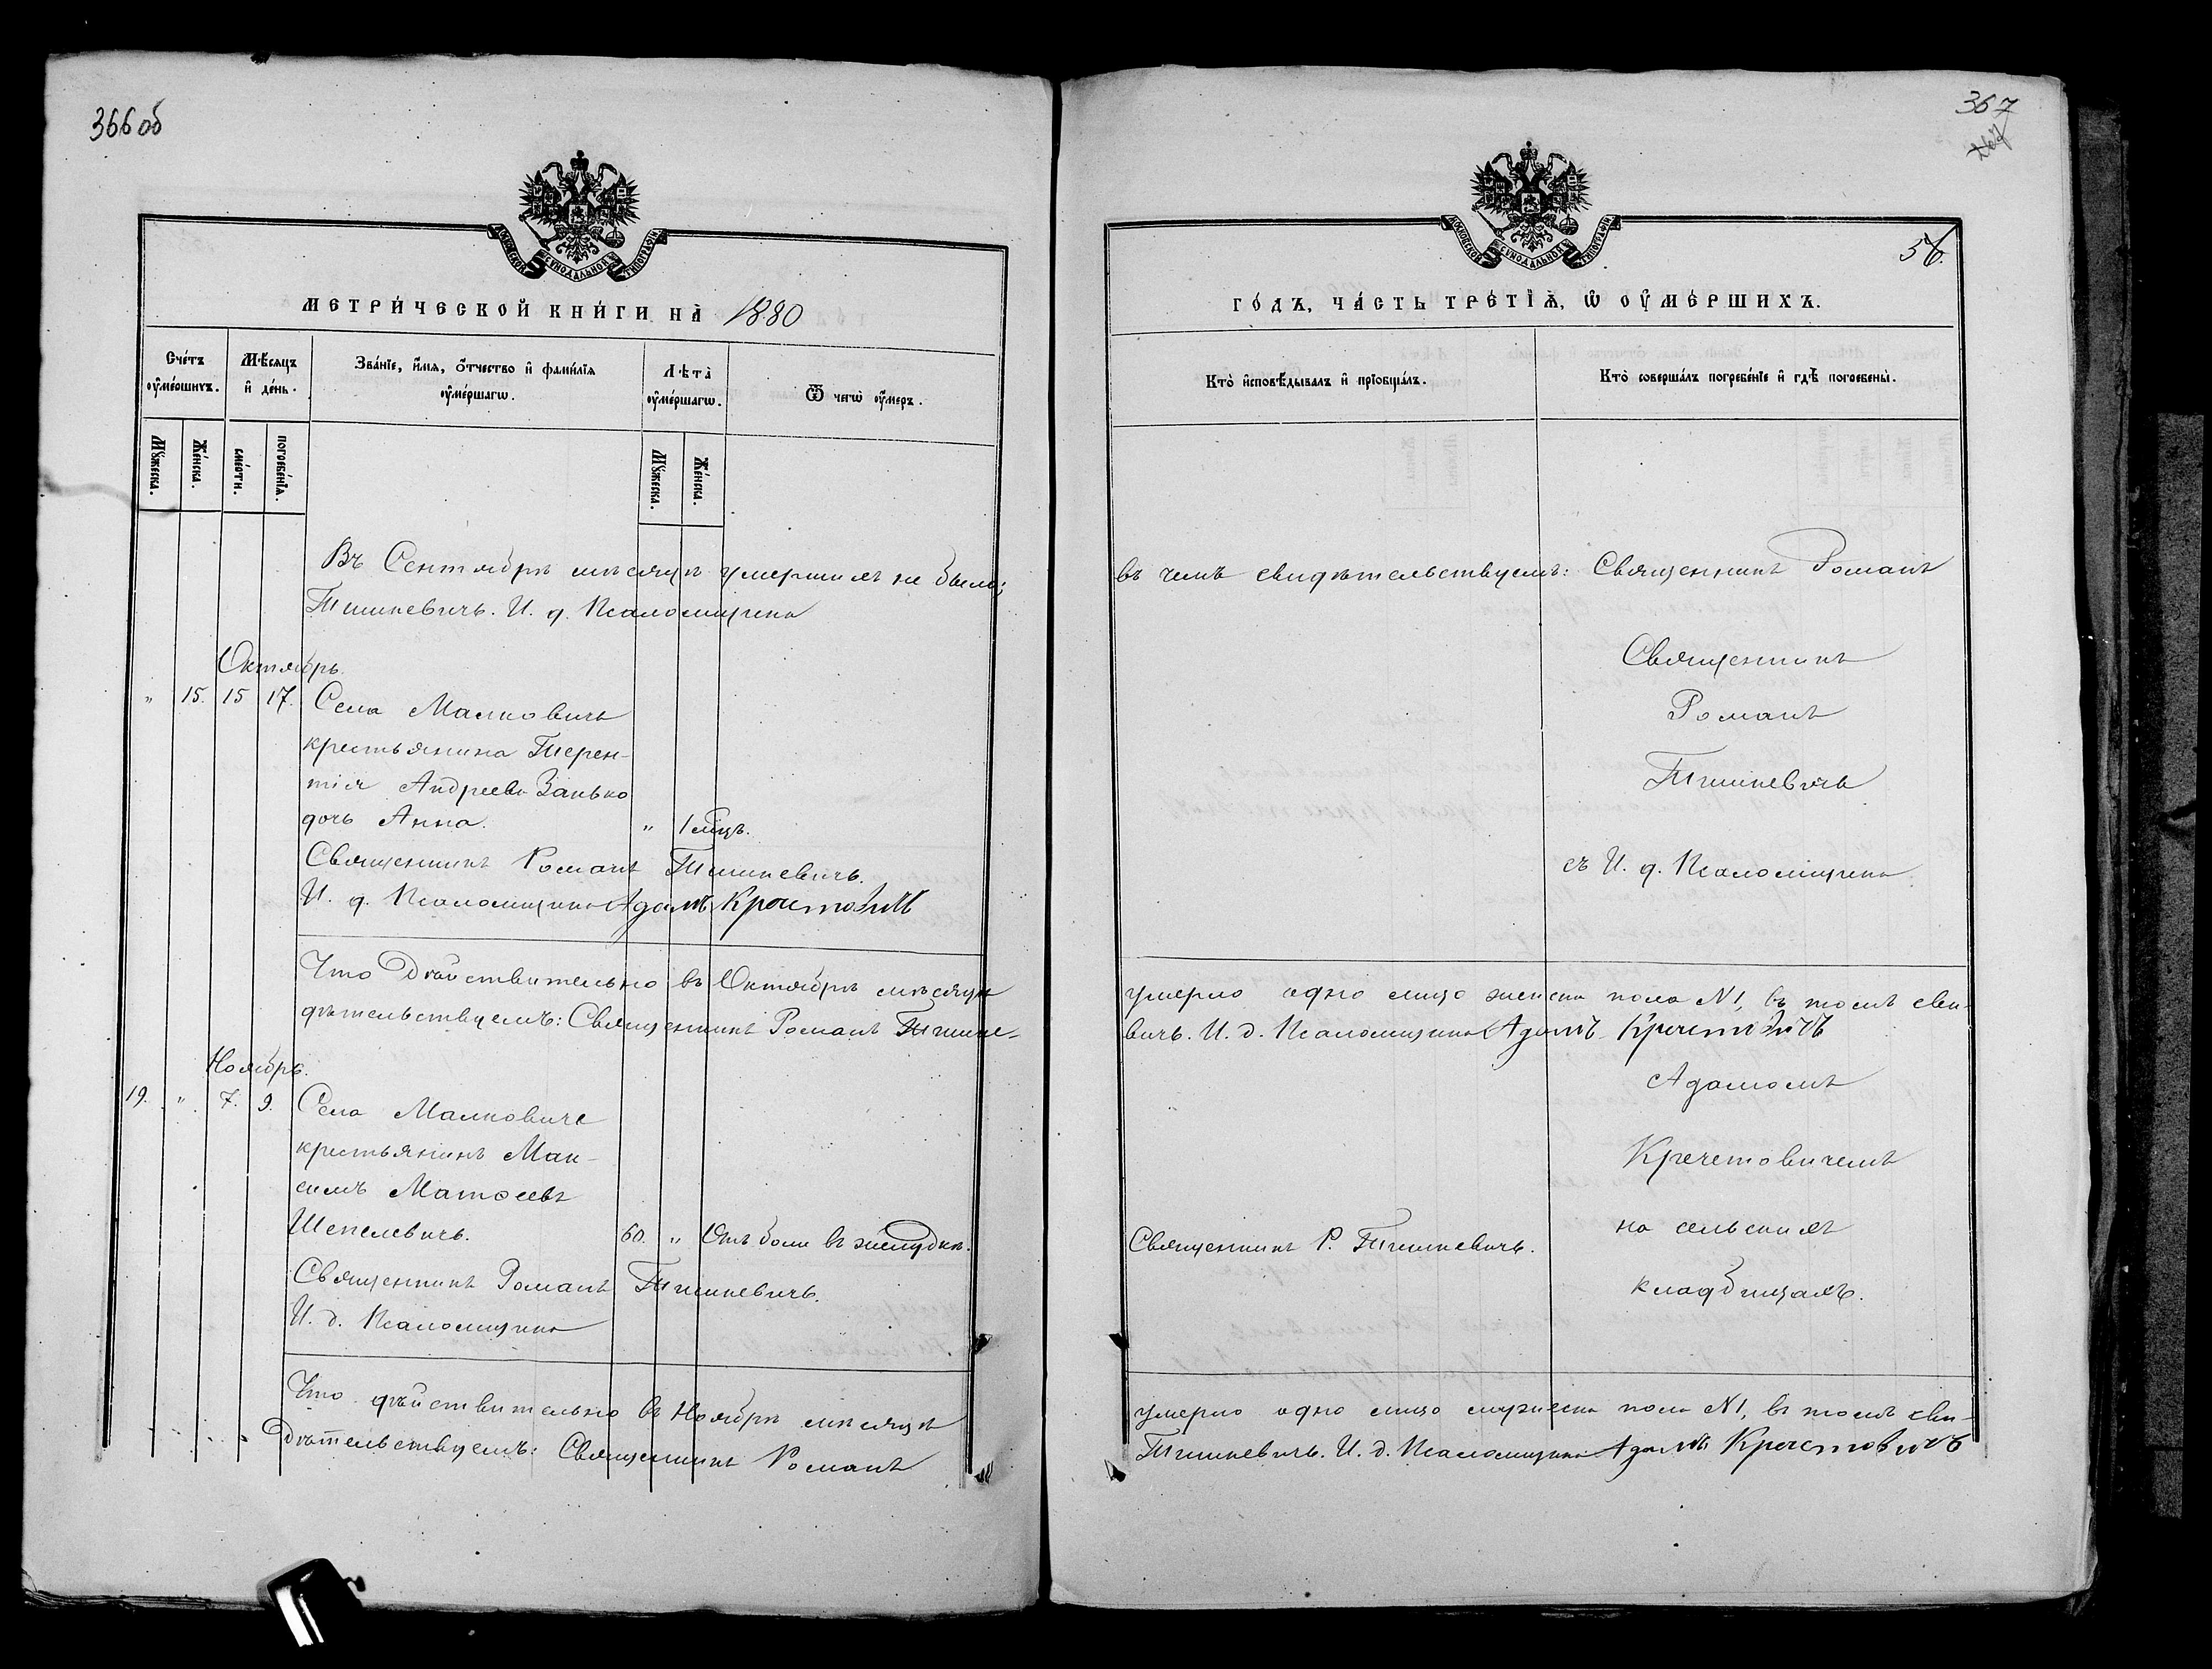 366 об
МОСКОВСКОЙ СѴНОДАЛЬНОЙ ТИПОГРАФІИ
МЕТРИ́ЧЕСКОЙ КНИ́ГИ НА̀ 1880
Сче́тъ оу҆ме́ршихъ.
Мѣ́сяцъ и҆ де́нь.
Зва́нїе, и҆́мѧ, ѻ҆́тчество и҆ фами́лїѧ оу҆ме́ршагѡ.
Лѣ́та̀ оу҆ме́ршагѡ.
Ѿ чегѡ̀ оу҆́меръ.
Мꙋ́жеска.
Же́нска.
сме́рти.
погребе́нїѧ.
Мꙋ́жеска.
Же́нска.
Въ Сентябрѣ мѣсяцѣ умершихъ не было;
Тишкевичъ. И. д. Псаломщика
Октябрь.
" 15. 15 17. Села Малковичъ
крестьянина Терен-
тія Андреева Занько
дочь Анна. " 1 мцъ.
Священникъ Романъ Тишкевичъ.
И. д. Псаломщика Адамъ Кречетовичъ
Что Дѣйствительно въ Октябрѣ мѣсяцѣ
дѣтельствуемъ: Священникъ Романъ Тишке-
Ноябрь.
19. " 7. 9. Села Малковичъ
крестьянинъ Мак-
симъ Матѳеевъ
Шепелевичъ. 60. " Отъ боли въ желудкѣ.
Священникъ Романъ Тишкевичъ.
И. д. Псаломщика
Что дѣйствительно въ Ноябрѣ мѣсяцѣ
Дѣтельствуемъ: Священникъ Романъ
367
56.
МОСКОВСКОЙ СѴНОДАЛЬНОЙ ТИПОГРАФІИ
ГО́ДЪ, ЧА́СТЬ ТРЕ́ТЇѦ, Ѡ ОУ҆МЕ́РШИХЪ.
Кто̀ и҆сповѣ́дывалъ и҆ прїобща́лъ.
Кто̀ соверша́лъ погребе́нїе и҆ гдѣ̀ погребены̀.
въ чемъ свидѣтельствуемъ: Священникъ Романъ
Священникъ
Романъ
Тишкевичъ
съ И. д. Псаломщика
умерло одно лицо женска пола №1, въ томъ сви-
вичъ. И. д. Псаломщика Адамъ Кречетовичъ
Адамомъ
Кречетовичемъ
на сельскихъ
Священникъ Р. Тишкевичъ.
кладбищахъ.
умерло одно лицо мужеска пола №1, въ томъ сви-
Тишкевичъ. И. д. Псаломщика Адамъ Кречетовичъ